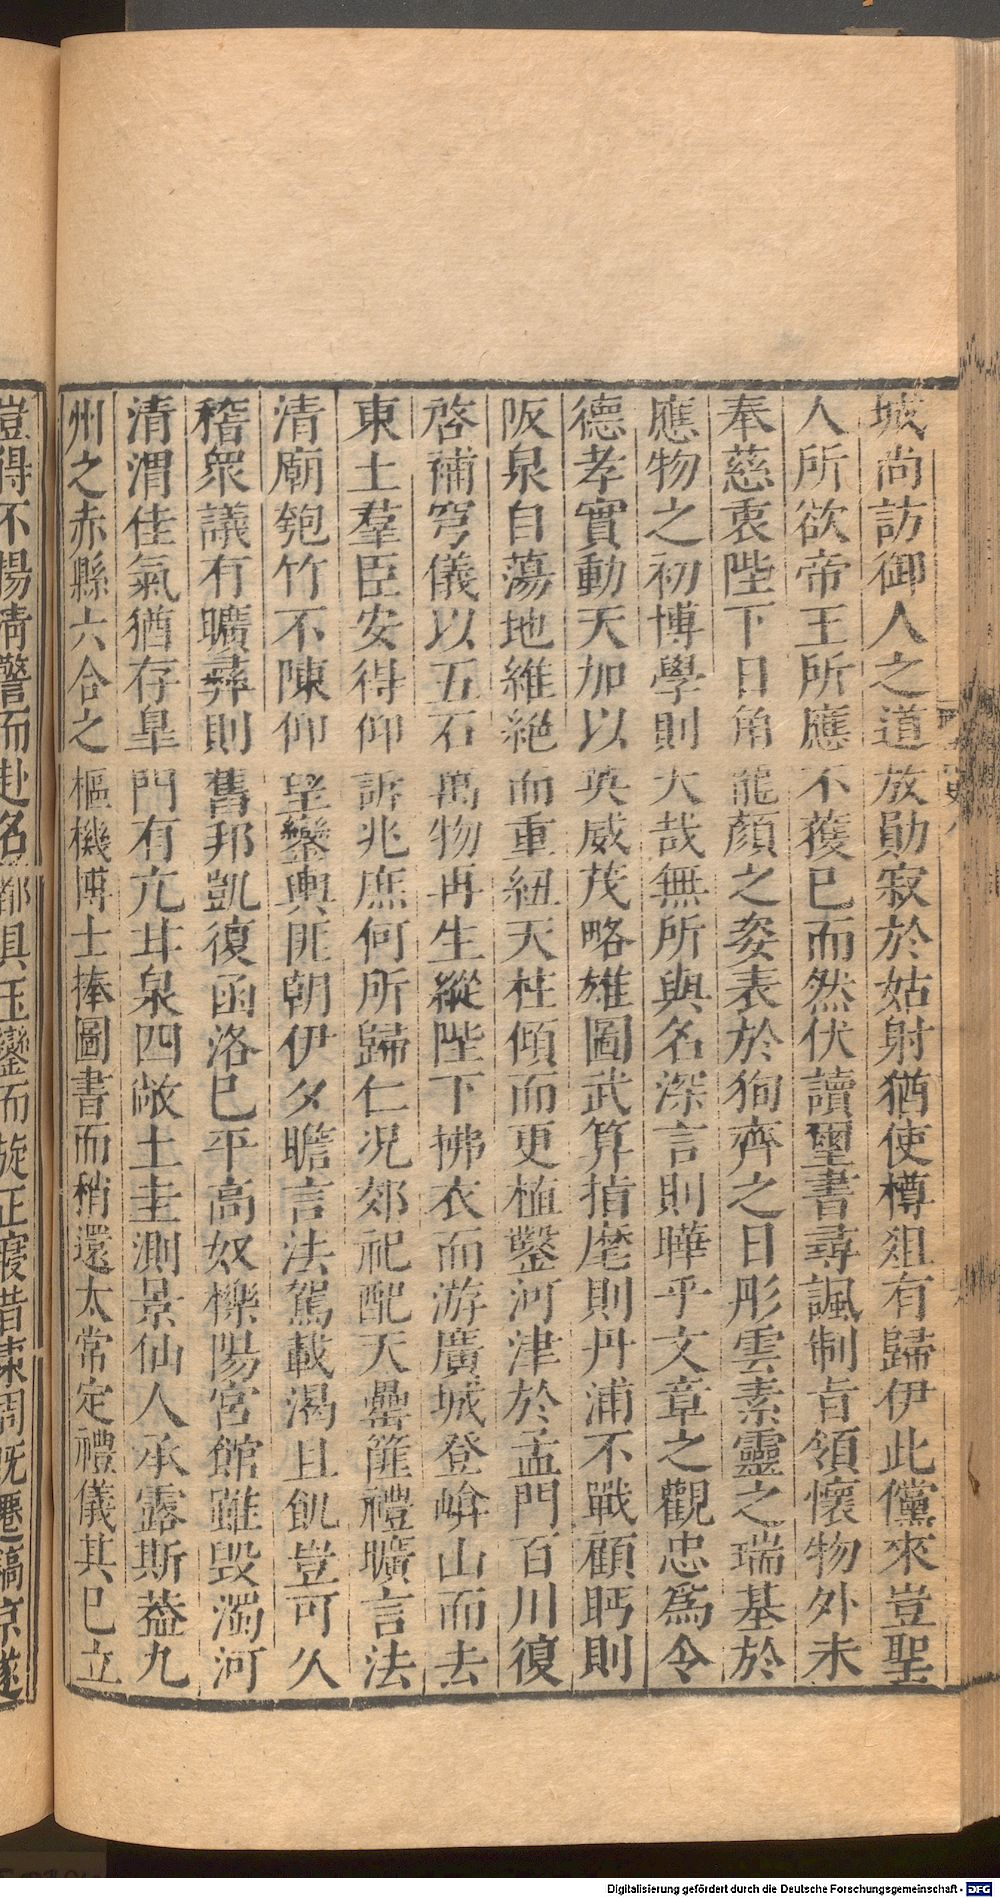 城尚訪御人之道放勛寂於姑射猶使樽俎有歸伊此儻來豈聖
人所欲帝王所應不獲已而然伏讀璽書尋諷制旨領懷物外未
奉慈衷陛下日角龍顏之姿表於狥齊之日彤雲素靈之瑞基於
應物之初博學則大哉無所與名深言則曄乎文章之觀忠爲令
德孝實動天加以英威茂略雄圖武算指麾則丹浦不戰顧眄則
阪泉自蕩地維絕而重紐天柱傾而更植鑿河津於孟門百川復
啓補穹儀以五石萬物再生縱陛下拂衣而游廣城登崆山而去
東土羣臣安得仰訴兆庶何所歸仁况郊祀配天罍篚禮曠言法
清廟匏竹不陳仰望鑾輿匪朝伊夕瞻言法駕載渴且飢豈可久
稽衆議有曠彝則舊邦凱復函洛已平高奴櫟陽宮館雖毀濁河
清渭佳氣猶存臯門有亢甘泉四敞土圭測景仙人承露斯葢九
州之赤縣六合之樞機博士捧圖書而稍還太常定禮儀其已立
豈得不揚清警而赴名都具玉鑾而旋正寢昔東周旣遷鎬京遂
Digitalisierung gefördert durch die Deutsche Forschungsgemeinschaft - DFG